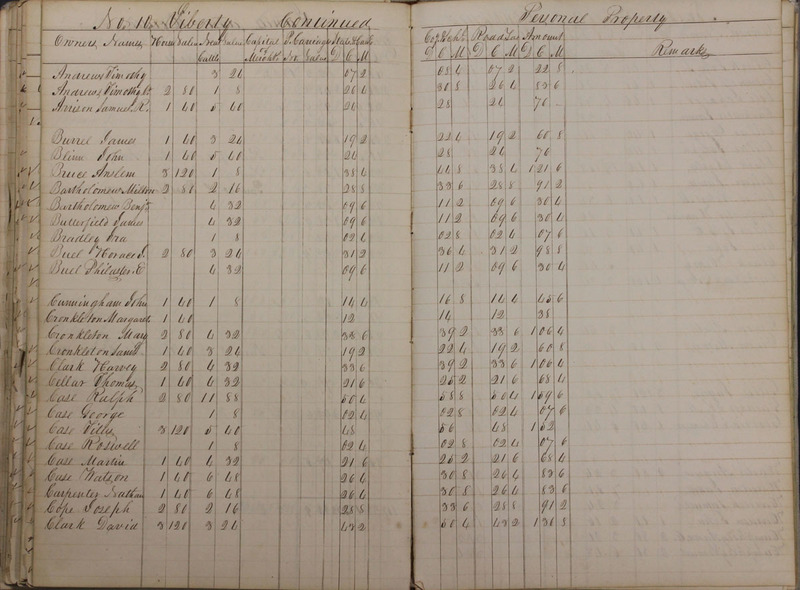 No. 10. Liberty Continued Personal Property
Owners Names Horses Value Neat Value Capital P. Carriages State & Co Co & Schl Road Tax Amount
Cattle Mercht No. Value D C M D C M D C M D C M Remarks
Andrews Timothy 3 24 07 2 08 4 07 2 22 8
Andrews Timothy 2 80 1 8 26 4 30 8 26 4 83 6
Arrison Samuel R. 1 40 5 40 24 28 24 76
Burrel James 1 40 3 24 19 2 22 4 19 2 60 8
Blinn John 1 40 5 40 24 28 24 76
Bruce Anslem 3 120 1 8 38 4 44 8 38 4 1 21 6
Bartholomew Milton 2 80 2 16 28 8 33 6 28 8 91 2
Bartholomew Benj. 4 32 09 6 11 2 09 6 30 4
Butterfield James 4 32 09 6 11 2 09 6 30 4
Bradley Ira 1 8 02 4 02 8 02 4 07 6
Buel Horace J. 2 80 3 24 31 2 36 4 31 2 98 8
Buel Philaster C 4 32 09 6 11 2 09 6 30 4
Cunningham John 1 40 1 8 14 4 16 8 14 4 45 6
Cronkleton Margaret 1 40 12 14 12 38
Cronkleton Mary 2 80 4 32 33 6 39 2 33 6 1 06 4
Cronkleton James 1 40 3 24 19 2 22 4 19 2 60 8
Clark Harvey 2 80 4 32 33 6 39 2 33 6 1 06 4
Cellar Thomas 1 40 4 32 21 6 25 2 21 6 68 4
Case Ralph 2 80 11 88 50 4 58 8 50 4 1 59 6
Case George 1 8 02 4 02 8 02 4 07 6
Case Titus 3 120 5 40 48 56 48 1 52
Case Roswell 1 8 02 4 02 8 02 4 07 6
Case Martin 1 40 4 32 21 6 25 2 21 6 68 4
Case Watson 1 40 6 48 26 4 30 8 26 4 83 6
Carpenter Nathan 1 40 6 48 26 4 30 8 26 4 83 6
Cope Joseph 2 80 2 16 28 8 33 6 28 8 91 2
Clark David 3 120 3 24 43 2 50 4 43 2 1 36 8